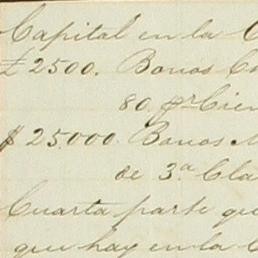 Capital en la C
£ 2500. Bonos C
80 pr Cien
$ 25.000. Bonos
de 3.a Cla
Cuarta parte qu
que hay en la C